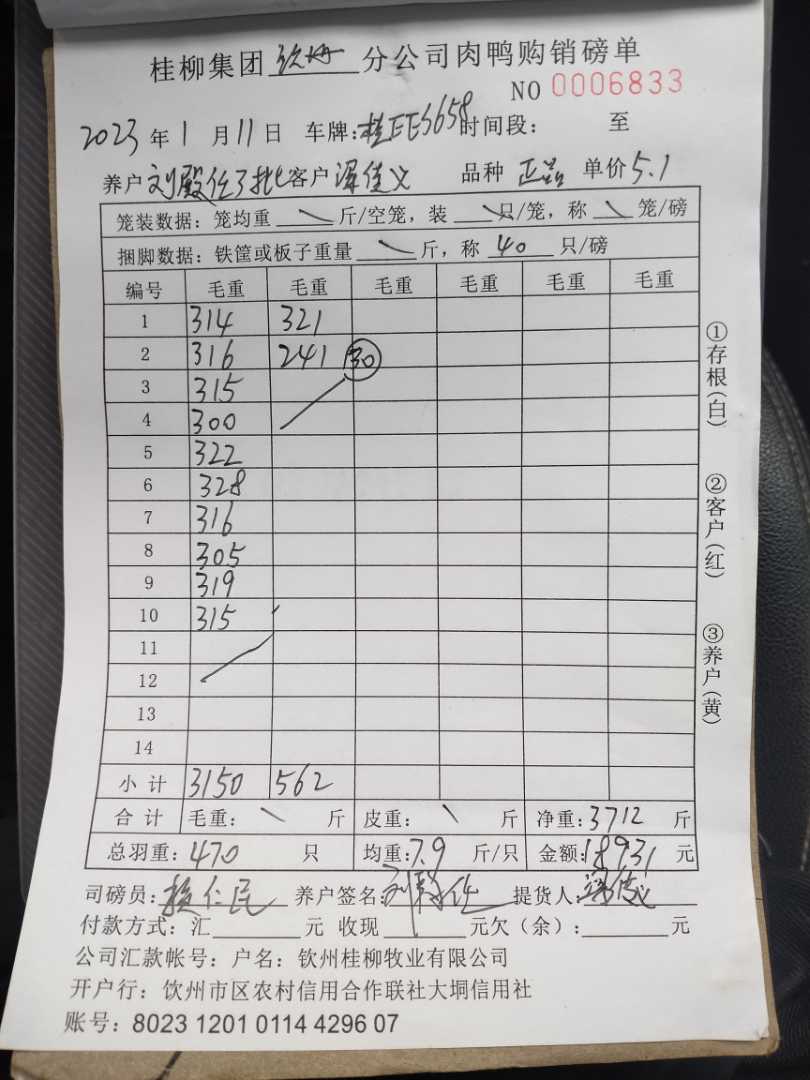 桂柳集团钦州分公司肉鸭购销磅单
NO 0006833
2023年1月11日 车牌:桂EE3658时间段: 至
养户 客户 品种 正品 单价5.1
笼装数据:笼均重 斤/空笼,装 只/笼,称 笼/磅
捆脚数据:铁筐或板子重量 斤,称 40 只/磅
编号 毛重 毛重 毛重 毛重 毛重 毛重
1 314 321
2 316 241 30
3 315
4 300
5 322
6 328
7 316
8 305
9 319
10 315
11
12
13
14
小计 3150 562
合计 毛重: 斤 皮重: 斤 净重:3712 斤
总羽重:470 只 均重:7.9 斤/只 金额:18931 元
司磅员: 仁民 养户签名: 提货人:
付款方式:汇 元 收现 元欠(余): 元
公司汇款帐号:户名:钦州桂柳牧业有限公司
开户行:钦州市区农村信用合作联社大垌信用社
账号:8023 1201 0114 4296 07
①存根(白)
②客户(红)
③养户(黄)